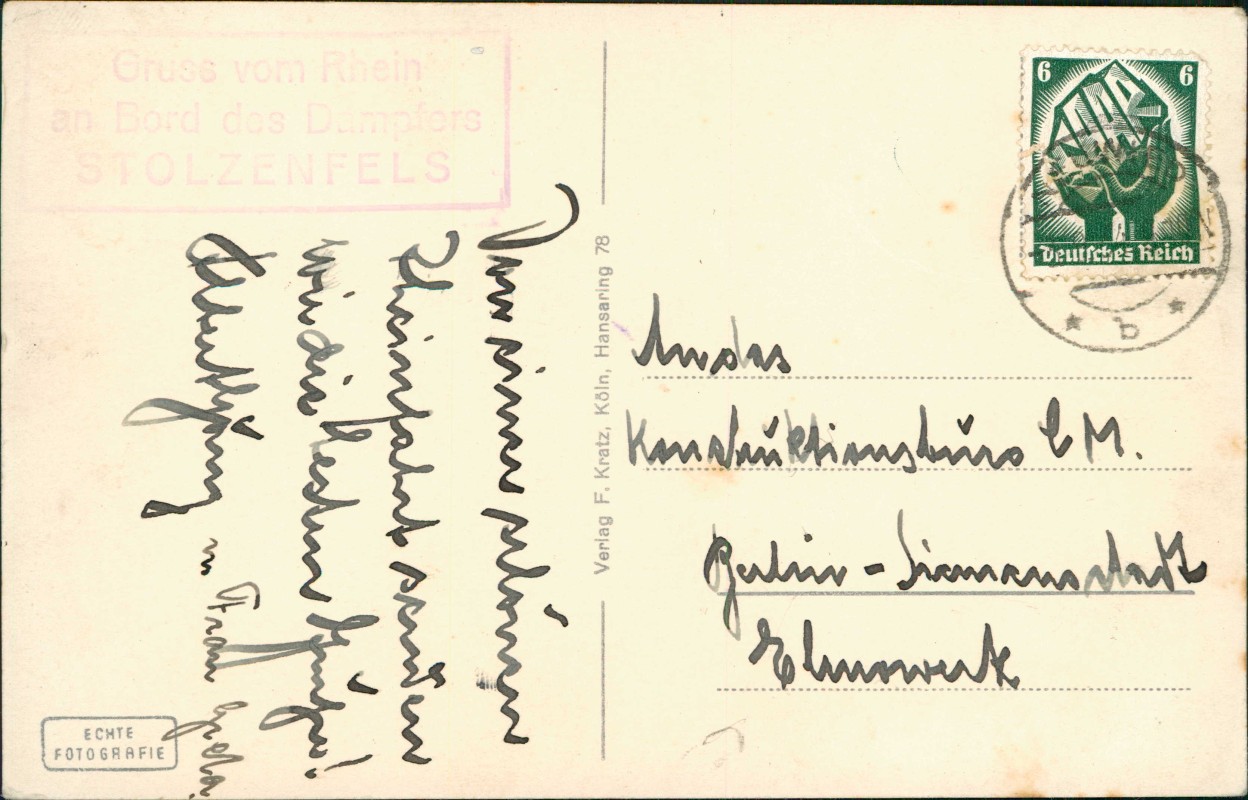 Gruss vom Rhein
an Bord des Dampfers
STOLZENFELS
Von einer schönen
Rheinfahrt senden
wir die besten Grüße!
u. Frau
ECHTE
FOTOGRAFIE
Verlag F. Kratz, Köln, Hansaring 78
6 6
SAAR
Deutsches Reich
b
An das
Konstruktionsbüro E M.
Berlin - Siemensstadt
Elmowerk